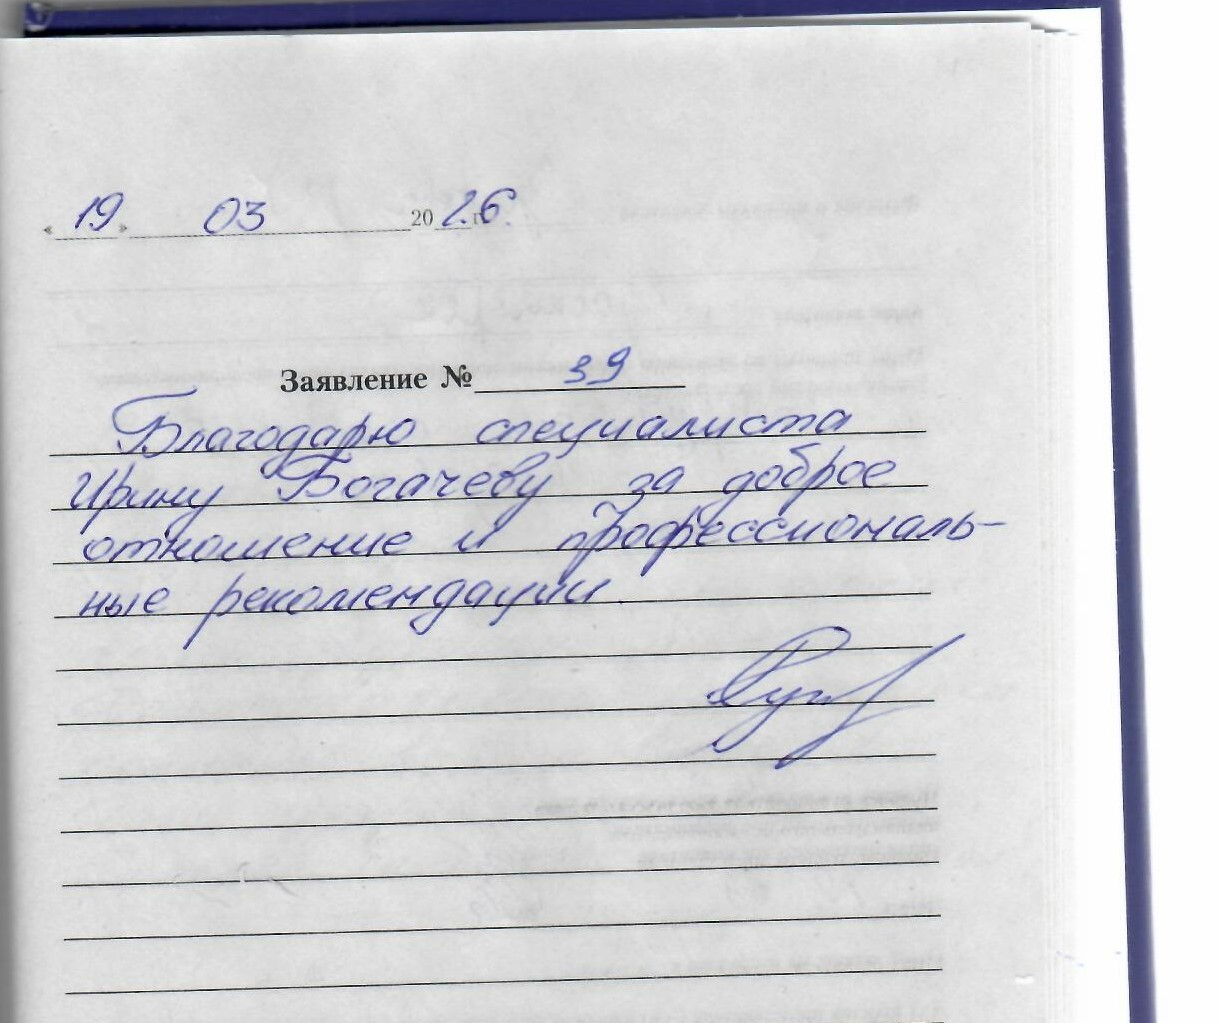 «19» 03 2026 г.
Заявление № 39
Благодарю специалиста
Ирину Богачеву за доброе
отношение и профессиональ-
ные рекомендации.